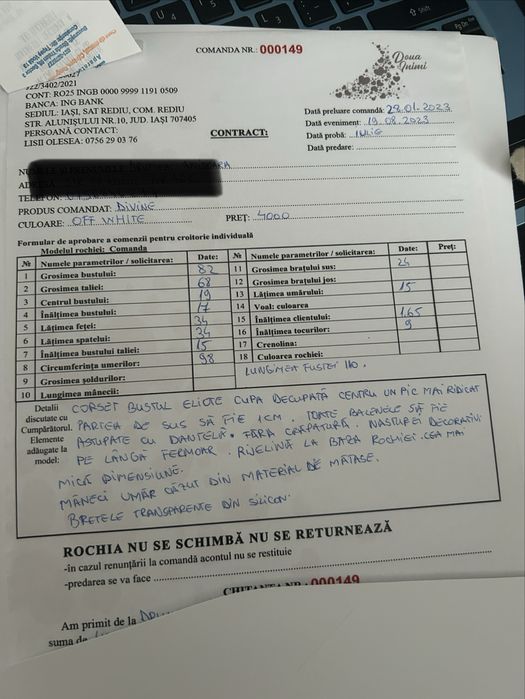 COMANDA NR.: 000149
Doua Inimi
J22/3402/2021
CONT: RO25 INGB 0000 9999 1191 0509
BANCA: ING BANK
SEDIUL: IAȘI, SAT REDIU, COM. REDIU
STR. ALUNIȘULUI NR.10, JUD. IAȘI 707405
PERSOANĂ CONTACT:
LISII OLESEA: 0756 29 03 76
CONTRACT:
Dată preluare comandă: 28.01.2023
Dată eveniment: 19.08.2023
Dată probă: Iulie
Dată predare:
TELEFON:
PRODUS COMANDAT: DIVINE
CULOARE: OFF WHITE PREȚ: 4000
Formular de aprobare a comenzii pentru croitorie individuală
Modelul rochiei: Comanda
№ Numele parametrilor / solicitarea: Date: № Numele parametrilor / solicitarea: Date: Preț:
1 Grosimea bustului: 82 11 Grosimea brațului sus: 24
2 Grosimea taliei: 68 12 Grosimea brațului jos:
3 Centrul bustului: 19 13 Lățimea umărului: 15
4 Înălțimea bustului: 17 14 Voal: culoarea
5 Lățimea feței: 34 15 Înălțimea clientului: 1.65
6 Lățimea spatelui: 34 16 Înălțimea tocurilor: 9
7 Înălțimea bustului taliei: 15 17 Crenolina:
8 Circumferința umerilor: 98 18 Culoarea rochiei:
9 Grosimea șoldurilor: LUNGIMEA FUSTEI 110.
10 Lungimea mânecii:
Detalii discutate cu Cumpărătorul. Elemente adăugate la model:
CORSET BUSTUL ELICTE CUPA DECUPATĂ CENTRU UN PIC MAI RIDICAT
PARTEA DE SUS SĂ FIE 1CM. TOATE BALENELE SĂ FIE
ASTUPATE CU DANTELĂ. FĂRĂ CRĂPĂTURĂ. NASTUREI DECORATIVI
PE LÂNGĂ FERMOAR. RIJELINĂ LA BAZA ROCHIEI. CEA MAI
MICĂ DIMENSIUNE.
MÂNECI UMĂR CĂZUT DIN MATERIAL DE MĂTASE.
BRETELE TRANSPARENTE DIN SILICON.
ROCHIA NU SE SCHIMBĂ NU SE RETURNEAZĂ
-în cazul renunțării la comandă acontul nu se restituie
-predarea se va face
CHITANȚA NR. 000149
Am primit de la
suma de